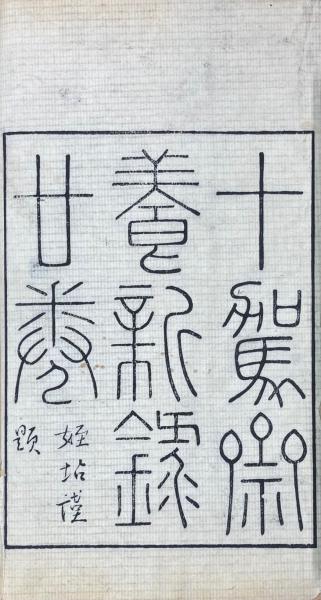 十駕齋
養新錄
廿卷
姪坫謹
題